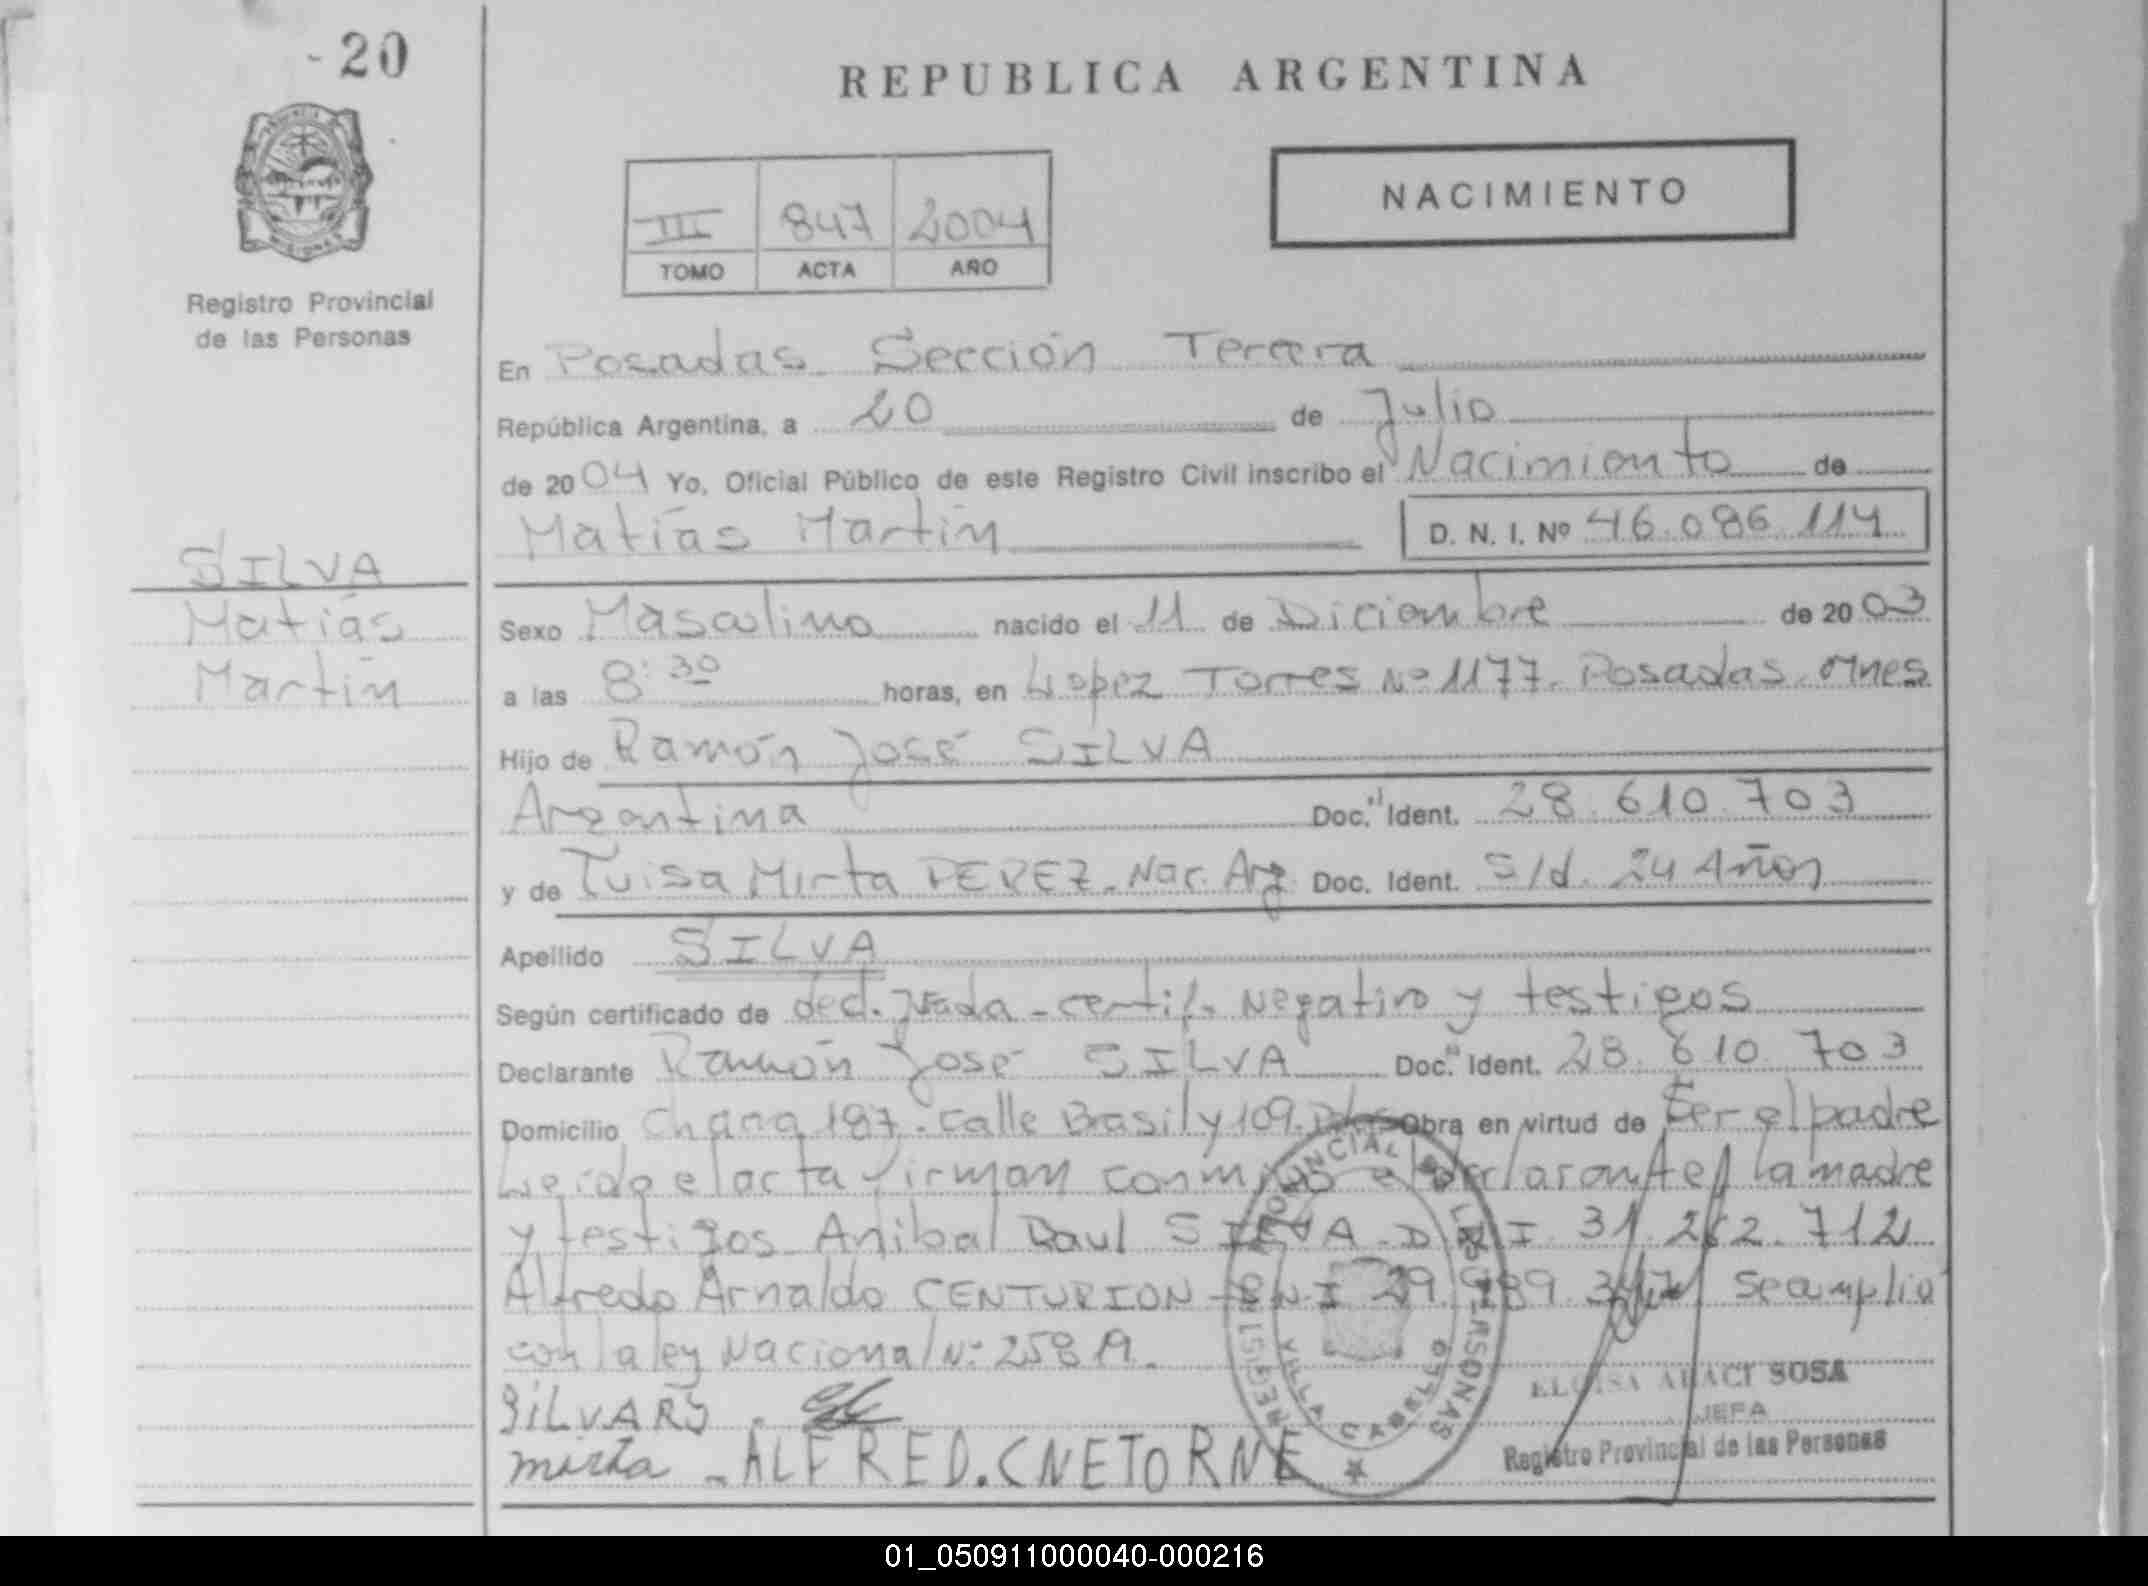 - 20
REPUBLICA ARGENTINA
NACIMIENTO
III 847 2004
TOMO ACTA AÑO
Registro Provincial
de las Personas
En Posadas Sección Tercera
República Argentina, a 20 de Julio
de 2004 Yo, Oficial Público de este Registro Civil inscribo el Nacimiento de
Matías Martín D. N. I. Nº 46.086.114
SILVA
Matías
Martín
Sexo Masculino nacido el 11 de Diciembre de 2003
a las 8:30 horas, en Lopez Torres Nº 1177. Posadas. Mnes
Hijo de Ramón José SILVA
Argentina Doc. Ident. 28.610.703
y de Luisa Mirta PEREZ. Nac. Arg. Doc. Ident. S/d. 24 Años
Apellido SILVA
Según certificado de decl. Jurada - certif. Negativo y testigos
Declarante Ramón José SILVA Doc. Ident. 28.610.703
Domicilio 187. calle Brasil y 109. Obra en virtud de Ser el padre
Leida el acta firman conmigo el declarante, la madre
y testigos Anibal Raul SILVA D.N.I. 31.262.712
Alfredo Arnaldo CENTURION D.N.I 29. se amplio
con la ley Nacional Nº
SILVA RJ
mirta - ALFRED. CNETORNE
REGISTRO PROVINCIAL DE LAS PERSONAS
VILLA CABELLO
ELOISA ARACI SOSA
JEFA
Registro Provincial de las Personas
01_050911000040-000216